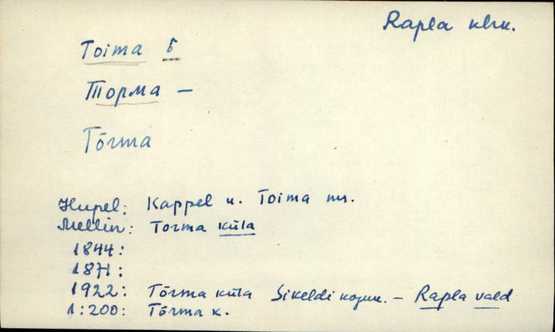 Rapla khk.
Toima 5
Торма –
Tõrma
Hupel: Kappel u. Toima
Mellin: Torma küla
1844:
1871:
1922: Tõrma küla Sikeldi koguk. – Rapla vald
1:200: Tõrma k.